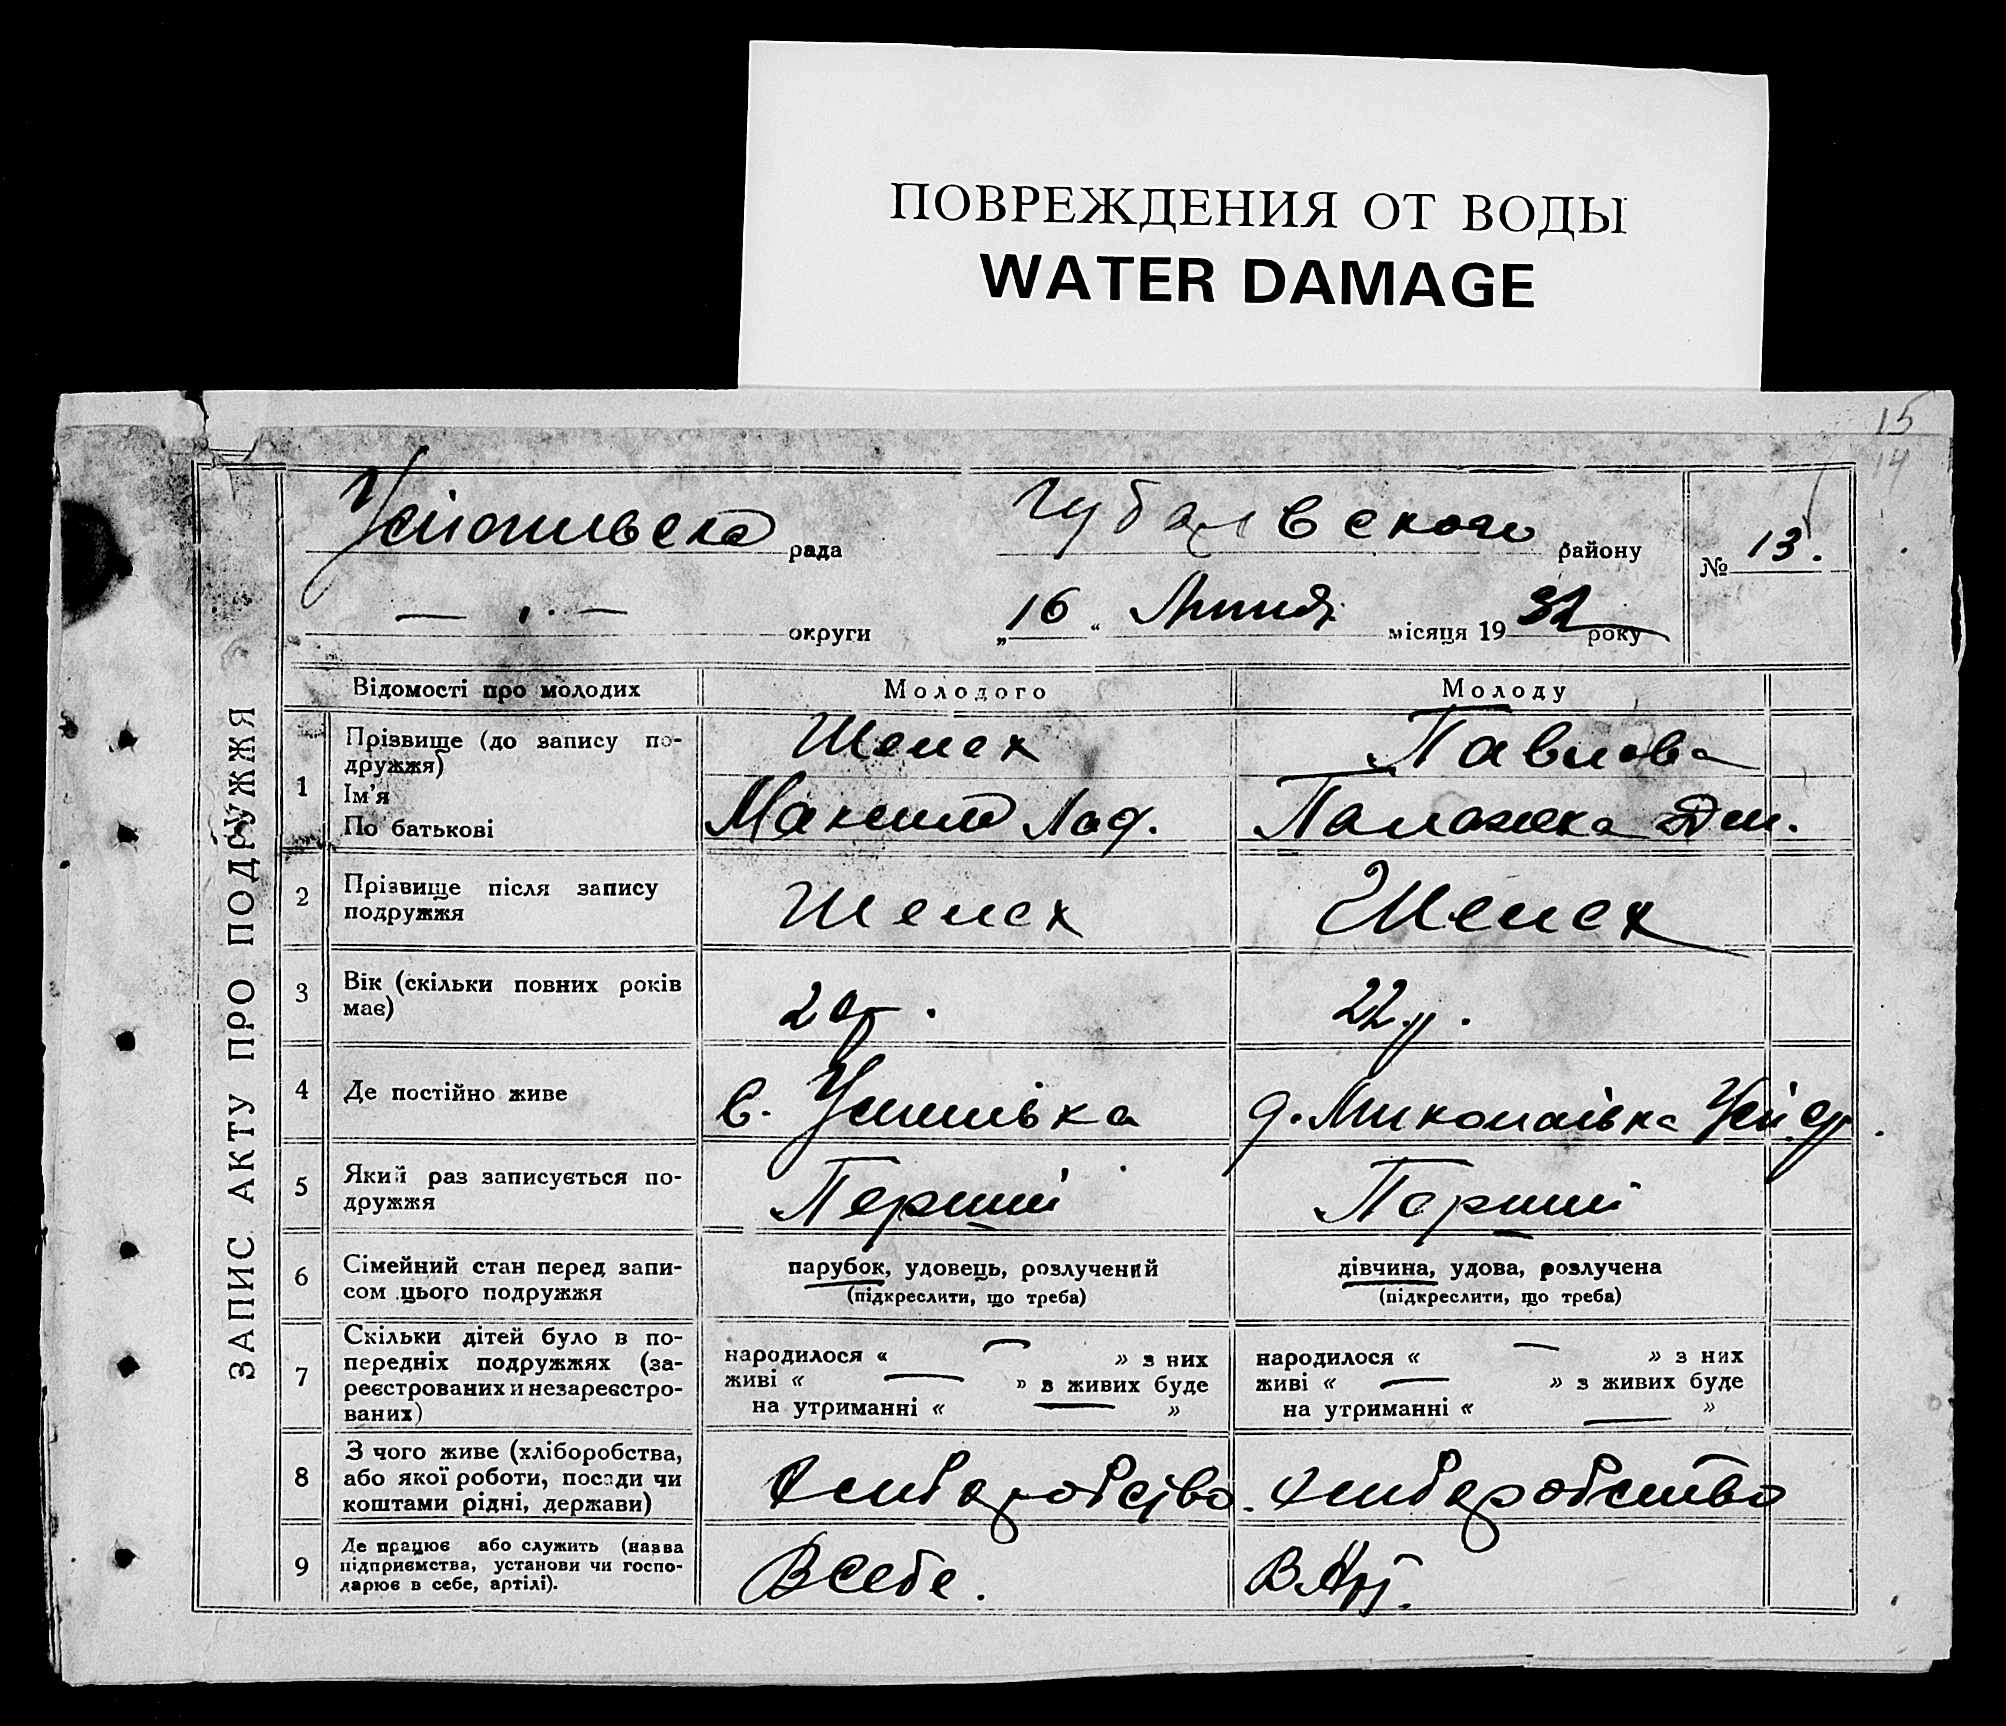 ПОВРЕЖДЕНИЯ ОТ ВОДЫ
WATER DAMAGE
15
14
рада
району
№ 13.
округи
„ 16 “ Липня місяця 19 32 року
ЗАПИС АКТУ ПРО ПОДРУЖЖЯ
Відомості про молодих
Молодого
Молоду
1
Прізвище (до запису по-
дружжя)
Ім'я
По батькові
Шелех
Максим
Павлова
Палажка
2
Прізвище після запису
подружжя
Шелех
Шелех
3
Вік (скільки повних років
має)
22 р.
4
Де постійно живе
с.
д. Миколаівка
5
Який раз записується по-
дружжя
Перший
Перший
6
Сімейний стан перед запи-
сом цього подружжя
парубок, удовець, розлучений
(підкреслити, що треба)
дівчина, удова, розлучена
(підкреслити, що треба)
7
Скільки дітей було в по-
передніх подружжях (за-
реєстрованих и незареєстро-
ваних)
народилося « — » з них
живі « — » з живих буде
на утриманні « — »
народилося « — » з них
живі « — » з живих буде
на утриманні « — »
8
З чого живе (хліборобства,
або якої роботи, посади чи
коштами рідні, держави)
хлибаробство.
хлибаробство
9
Де працює або служить (назва
підприємства, установи чи госпо-
дарює в себе, артілі).
В себе.